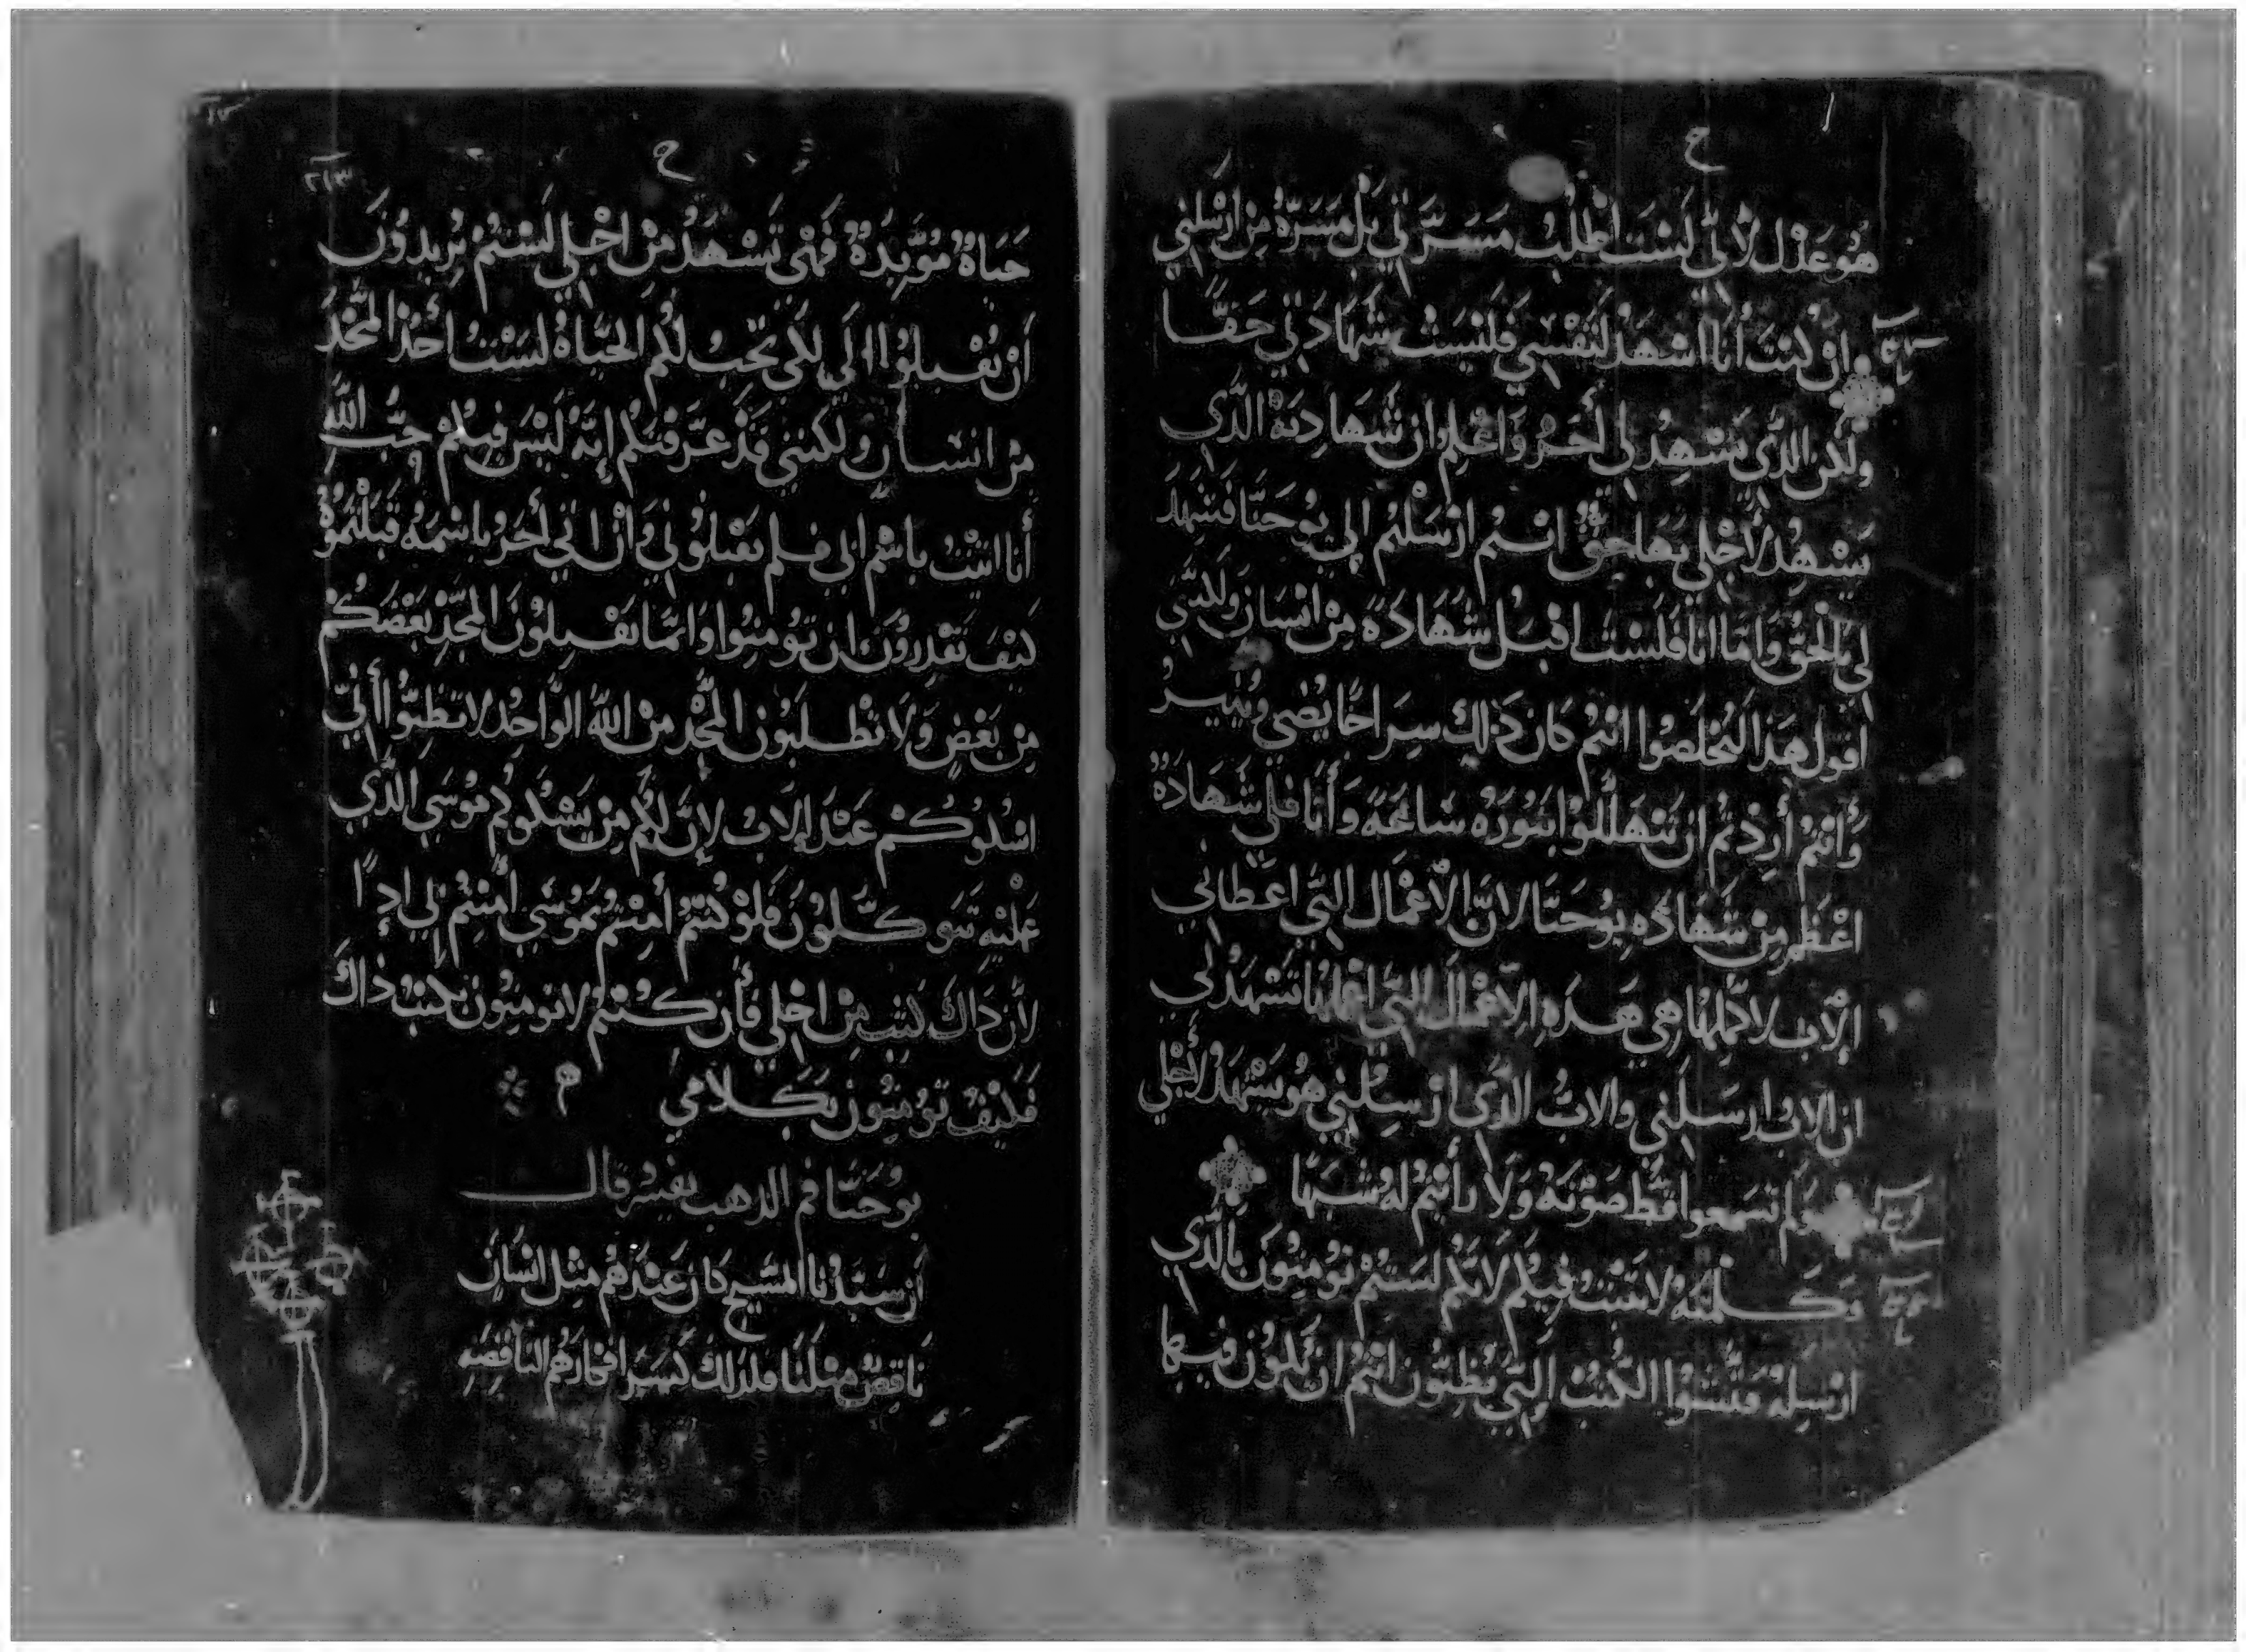 ح
هُو عَدْل لأنّي لَسْت اطْلُبُ مَسَرَّتي بَلْ مَسَرّةُ مِن ارْسَلني
انْ كنْتَ أَنا اشهَدْ لنَفْسي فَليْسَتْ شهَادَتي حَقًّا
ولَكن الذَّي يَشْهِدُ لي أَخَرُ وَاعْلم ان شَهَادِتَهُ الذَّي
يَشْهِدُ لأَجْلي بهَا حَقُّ انتمْ ارْسَلتُم الي يوُحَنَّا فَشَهِدَ
لي بالحَقُّ وَامّا انا فَلَسْتَ اقبَلْ شَهَادَةً مِنْ انْسَان ولَكنّي
اقول هَذا لتُخلَصوا انتُم كان ذَلك سِرَاجًا يُضي ويُنيرُ
وَأَنتمْ أَردْتُم ان تَتهَللُوا بنورُه سَاعَةً وَأَنَا فلي شَهادَةُ
اعْظَم مِنْ شَهَادَة يوُحَنَّا لانَّ الأعْمَال التي اعْطاني
الآب لاكَمِّلهَا هي هَذه الأعْمَال التي اعْمَلهَا تشْهَدُ لي
ان الاب ارسَلني والابُ الذَّي ارْسَلني هُو يشْهَدُ لأَجْلي
وَلَم تسَمعوا قَطّ صَوْتَهُ وَلَا رأَيتُم لهُ شبَهًا
وكَلمتهُ لا تَثْبتُ فيكُم لانَّكُم لسَتُمْ تؤمِنُونَ بالَّذي
ارْسِلهْ فَتّشوُا الكُتبْ التي تَظنّون انتُمُ ان تكُون فيها
ح
٢١٣
حَيَاةُ مُؤَبدَةٌ فَهْي تَشْهَدُ مِنْ اجْلي لَسْتُمْ تُريدوُنَ
أَنْ تُقْبلوُا الَي لكَي تَجبُ لكُم الحَيَاةُ لسَتُ أخُذ المَجْدَ
مِن انسَان ولكنني قَدْ عَرَفتكُم إنّهُ لَيْسَ فيكُمْ حُبُّ اللّه
أَنا اتيتُ باسْم ابي فلم تَقْبلوُني وَأنْ اتي أَخَرُ باسْمهُ قَبَلْتمُوُهُ
كَيْفَ تَقْدِروُنَ ان تُومنُوا وَانمّا تَقْبِلوُنَ المَجْدِ بَعْضَكُمْ
مِن بَعْضٍ وَلَا تطْلبُون المَّجْد مِنْ اللّهُ الوَاحُدِ لا تظنُّوا أَنّي
اشكُوكُمْ عَنْدَ الآبُ لإِنَّ لكُم مِن يَشْكُوكُم مُوْسَي الذَّي
عَليْهِ تَتوكّلوُنَ فلوْ كُنتُم أمنْتُم بمُوسَي أمنتُمْ لي إذًا
لأَن ذَاكَ كَتب مِنْ اجْلي فأن كُنْتم لا تومِنُون بكتبُ ذاكَ
فَكيْفَ تؤمِنُون بكَلامي م
يوُحَنّا فم الدهب يفسّر قال
ان سَيّدنُا المسَيح كان عَندهُم مِثل انسَان
نَاقِصْ مثلنَا فلذلك كسَر افكارهُم الناقصَه